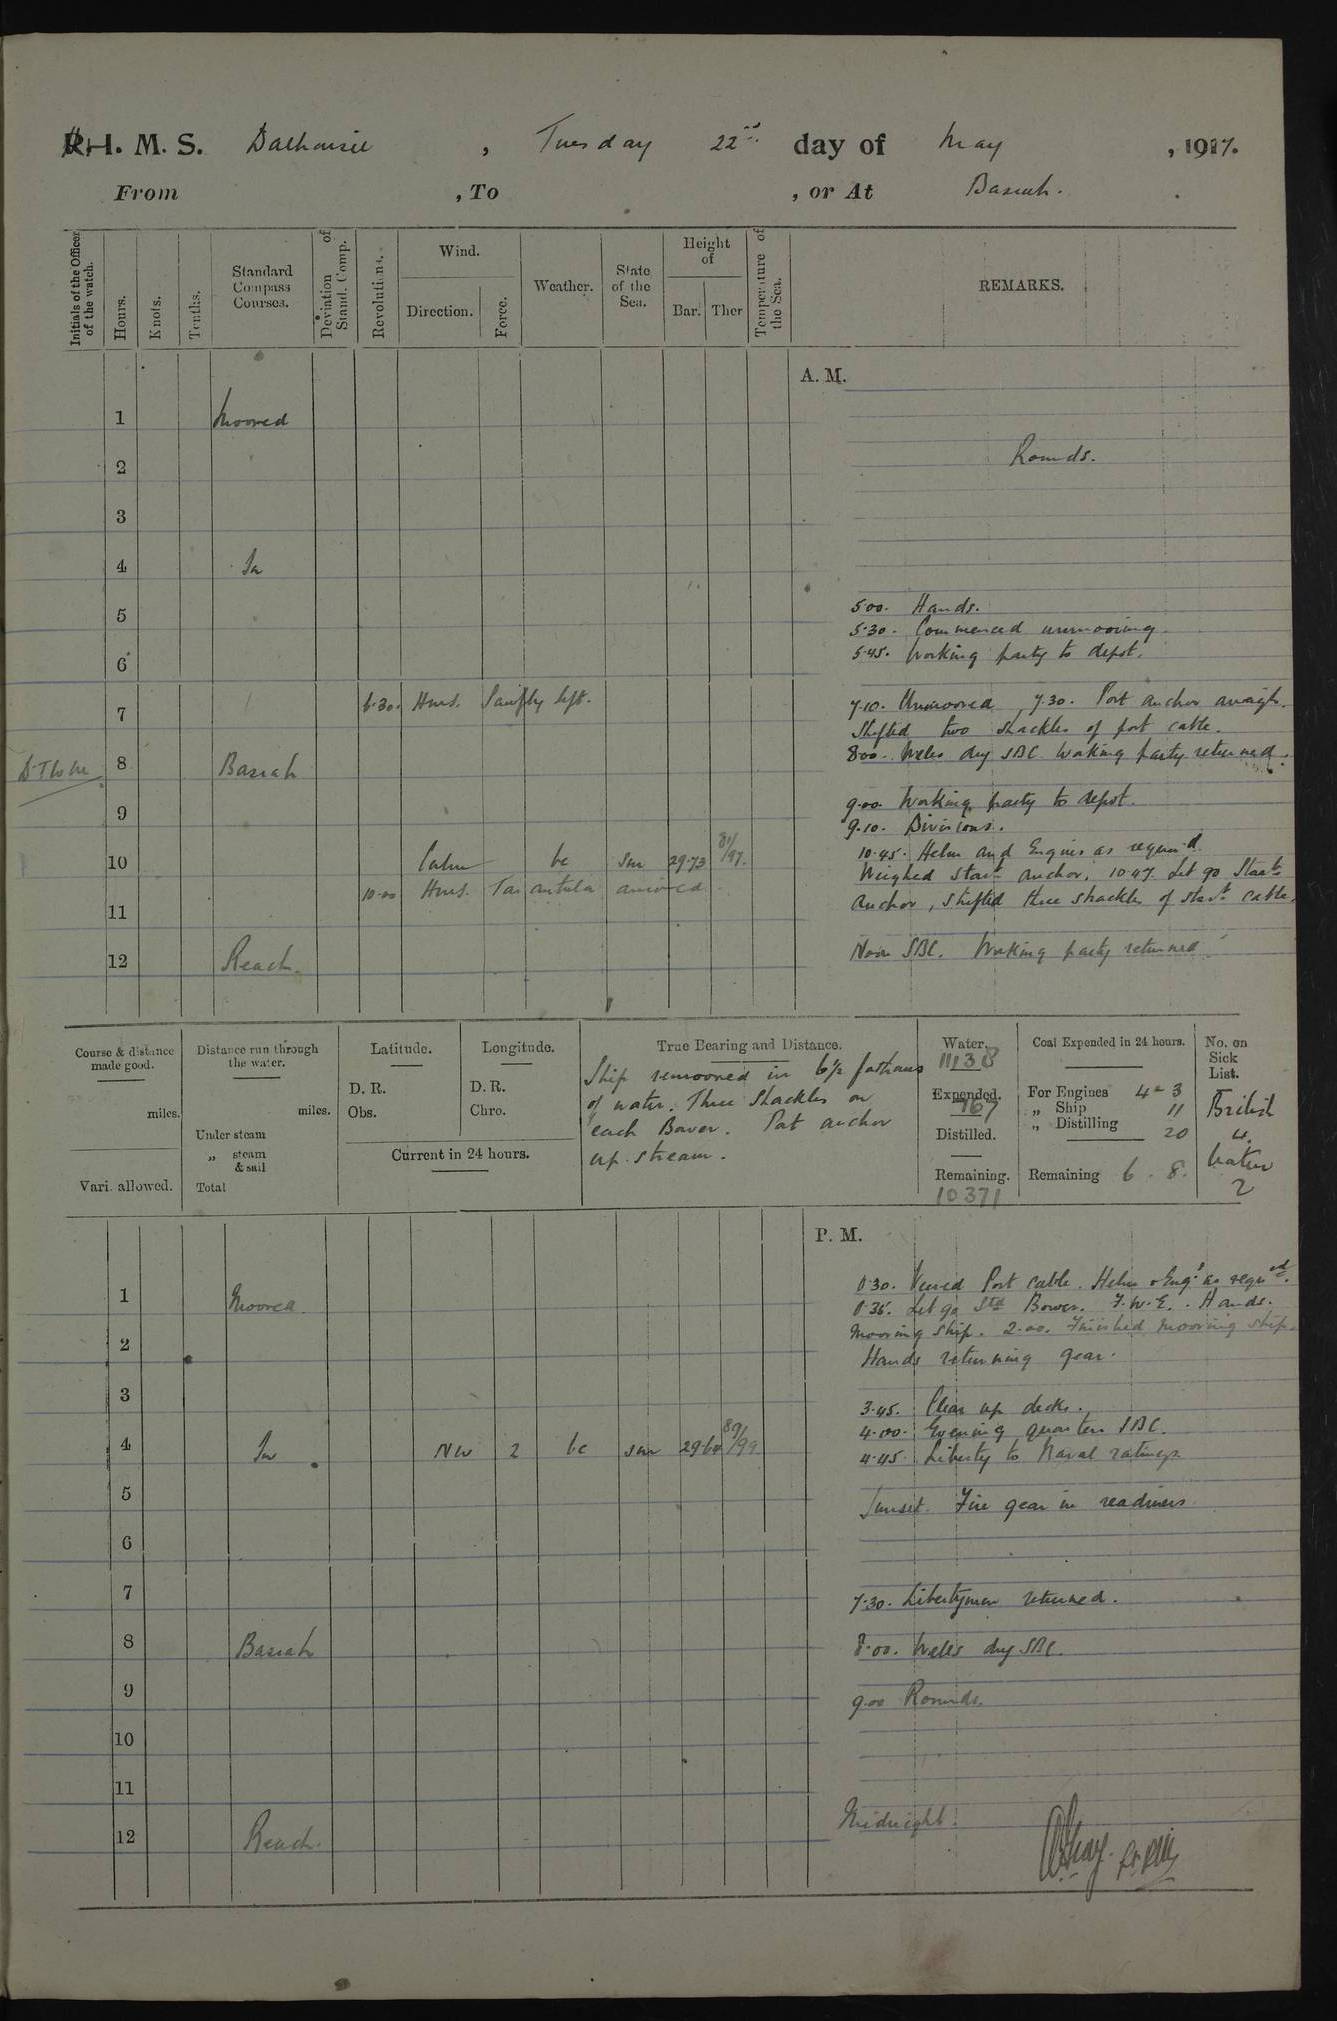 H. M. S. Dalhousie, Tuesday 22nd day of May, 1917.
From , To , or At Basrah.
Initials of the Officer of the watch.
Hours.
Knots.
Tenths.
Standard Compass Courses.
Deviation of Stand. Comp.
Revolutions.
Wind.
Direction.
Force.
Weather.
State of the Sea.
Height of
Bar.
Ther
Temperature of the Sea.
REMARKS.
A. M.
1 Moored
2 Rounds.
3
4 In
5 5.00. Hands.
5.30. Commenced unmooring
6 5.45. Working party to depot.
7 6.30. Hms. left. 7.10. Unmoored, 7.30. Port anchor aweigh.
Shifted two shackles of port cable.
8 Basrah 8.00. Wells dry SBC. Working party returned.
9 9.00. Working party to depot.
9.10. Divisions.
10 Calm bc sm 29.73 81/97. 10.45. Helm and Engines as requird
10.00 Hms. Tarantula arrived Weighed starbt anchor. 10.47. Let go Starbt
11 anchor, shifted three shackles of starbt cable.
12 Reach. Noon SBC. Working party returned
Course & distance made good.
miles.
Vari. allowed.
Distance run through the water.
miles.
Under steam
„ steam & sail
Total
Latitude.
D. R.
Obs.
Longitude.
D. R.
Chro.
Current in 24 hours.
True Bearing and Distance.
Ship remoored in 6½ fathoms
of water. Three shackles on
each Bower. Port anchor
up stream.
Water.
11138
Expended.
767
Distilled.
Remaining.
10371
Coal Expended in 24 hours.
For Engines 4 - 3
„ Ship 11
„ Distilling 20
Remaining 6 . 8.
No. on Sick List.
British
4.
Native
2
P. M.
0.30. Veered Port cable. Helm & Engs as requed.
1 Moored 0.35. Let go Stbd Bower. F.W.E. Hands.
Mooring ship. 2.00. Finished mooring ship.
2 Hands returning gear.
3 3.45. Clear up decks.
4 In NW 2 bc sm 29.64 89/99 4.00. Evening quarters SBC.
4.45. Liberty to Naval ratings
5 Sunset. Fire gear in readiness
6
7 7.30. Libertymen returned.
8 Basrah 8.00. Wells dry SBC.
9 9.00 Rounds.
10
11
12 Reach. Midnight.